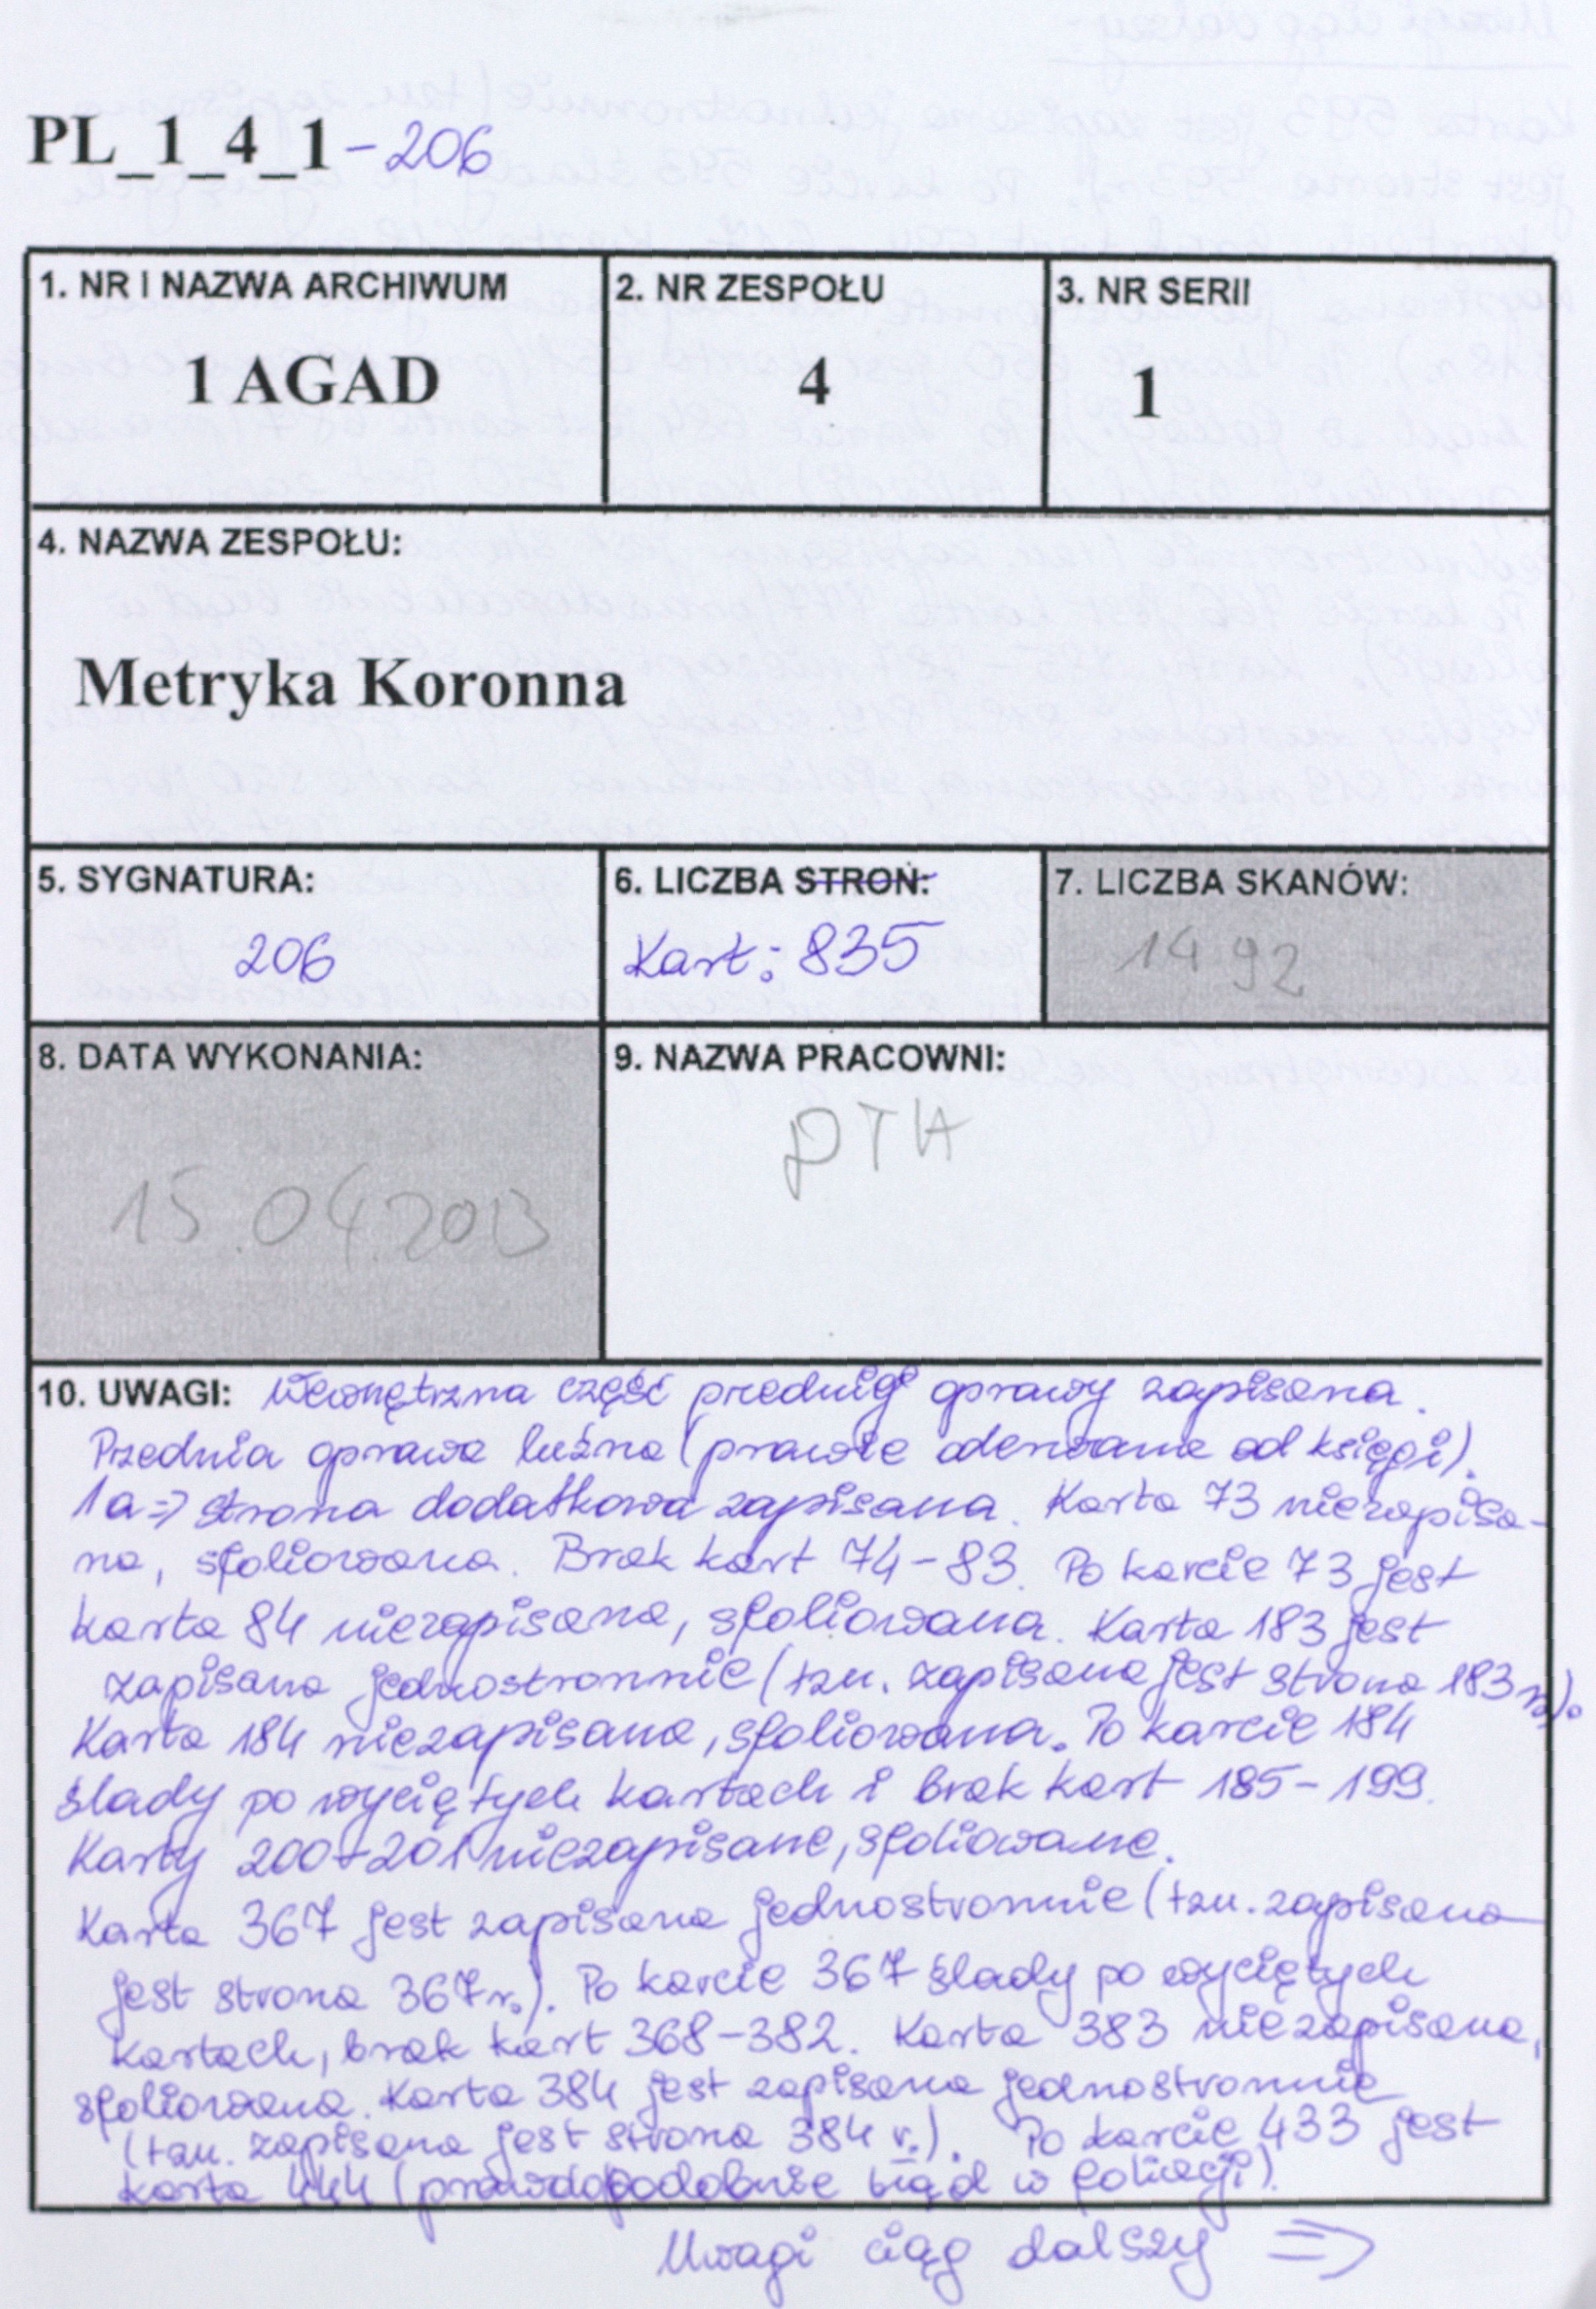 PL_1_4_1 - 206
1. NR I NAZWA ARCHIWUM
1 AGAD
2. NR ZESPOŁU
4
3. NR SERII
1
4. NAZWA ZESPOŁU:
Metryka Koronna
5. SYGNATURA:
206
6. LICZBA STRON:
Kart: 835
7. LICZBA SKANÓW:
1492
8. DATA WYKONANIA:
15.04.2013
9. NAZWA PRACOWNI:
PTH
10. UWAGI: Wewnętrzna część przedniej oprawy zapisana.
Przednia oprawa luźna (prawie oderwana od księgi).
1a => strona dodatkowa zapisana. Karta 73 niezapisa-
na, sfoliowana. Brak kart 74-83. Po karcie 73 jest
karta 84 niezapisana, sfoliowana. Karta 183 jest
zapisana jednostronnie (tzn. zapisana jest strona 183 r.).
Karta 184 niezapisana, sfoliowana. Po karcie 184
ślady po wyciętych kartach i brak kart 185-199.
Karty 200-201 niezapisane, sfoliowane.
Karta 367 jest zapisana jednostronnie (tzn. zapisana
jest strona 367 r.). Po karcie 367 ślady po wyciętych
kartach, brak kart 368-382. Karta 383 niezapisana,
sfoliowana. Karta 384 jest zapisana jednostronnie
(tzn. zapisana jest strona 384 v.). Po karcie 433 jest
karta 444 (prawdopodobnie błąd w foliacji).
Uwagi ciąg dalszy =>